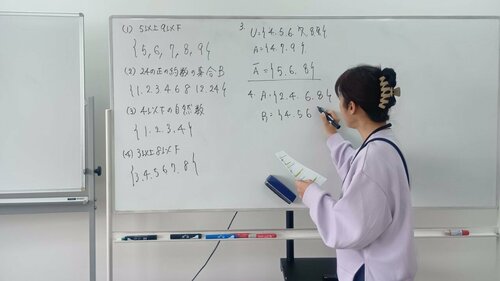 (1) 5以上9以下
{5, 6, 7, 8, 9}
(2) 24の正の約数の集合B
{1. 2. 3. 4. 6. 8 12. 24}
(3) 4以下の自然数
{1. 2. 3. 4}
(4) 3以上8以下
{3. 4. 5. 6. 7. 8}
3. U = {4. 5. 6. 7. 8. 9}
A = {4. 7. 9}
A̅ = {5. 6. 8}
4. A = {2. 4. 6. 8}
B = {4. 5 6